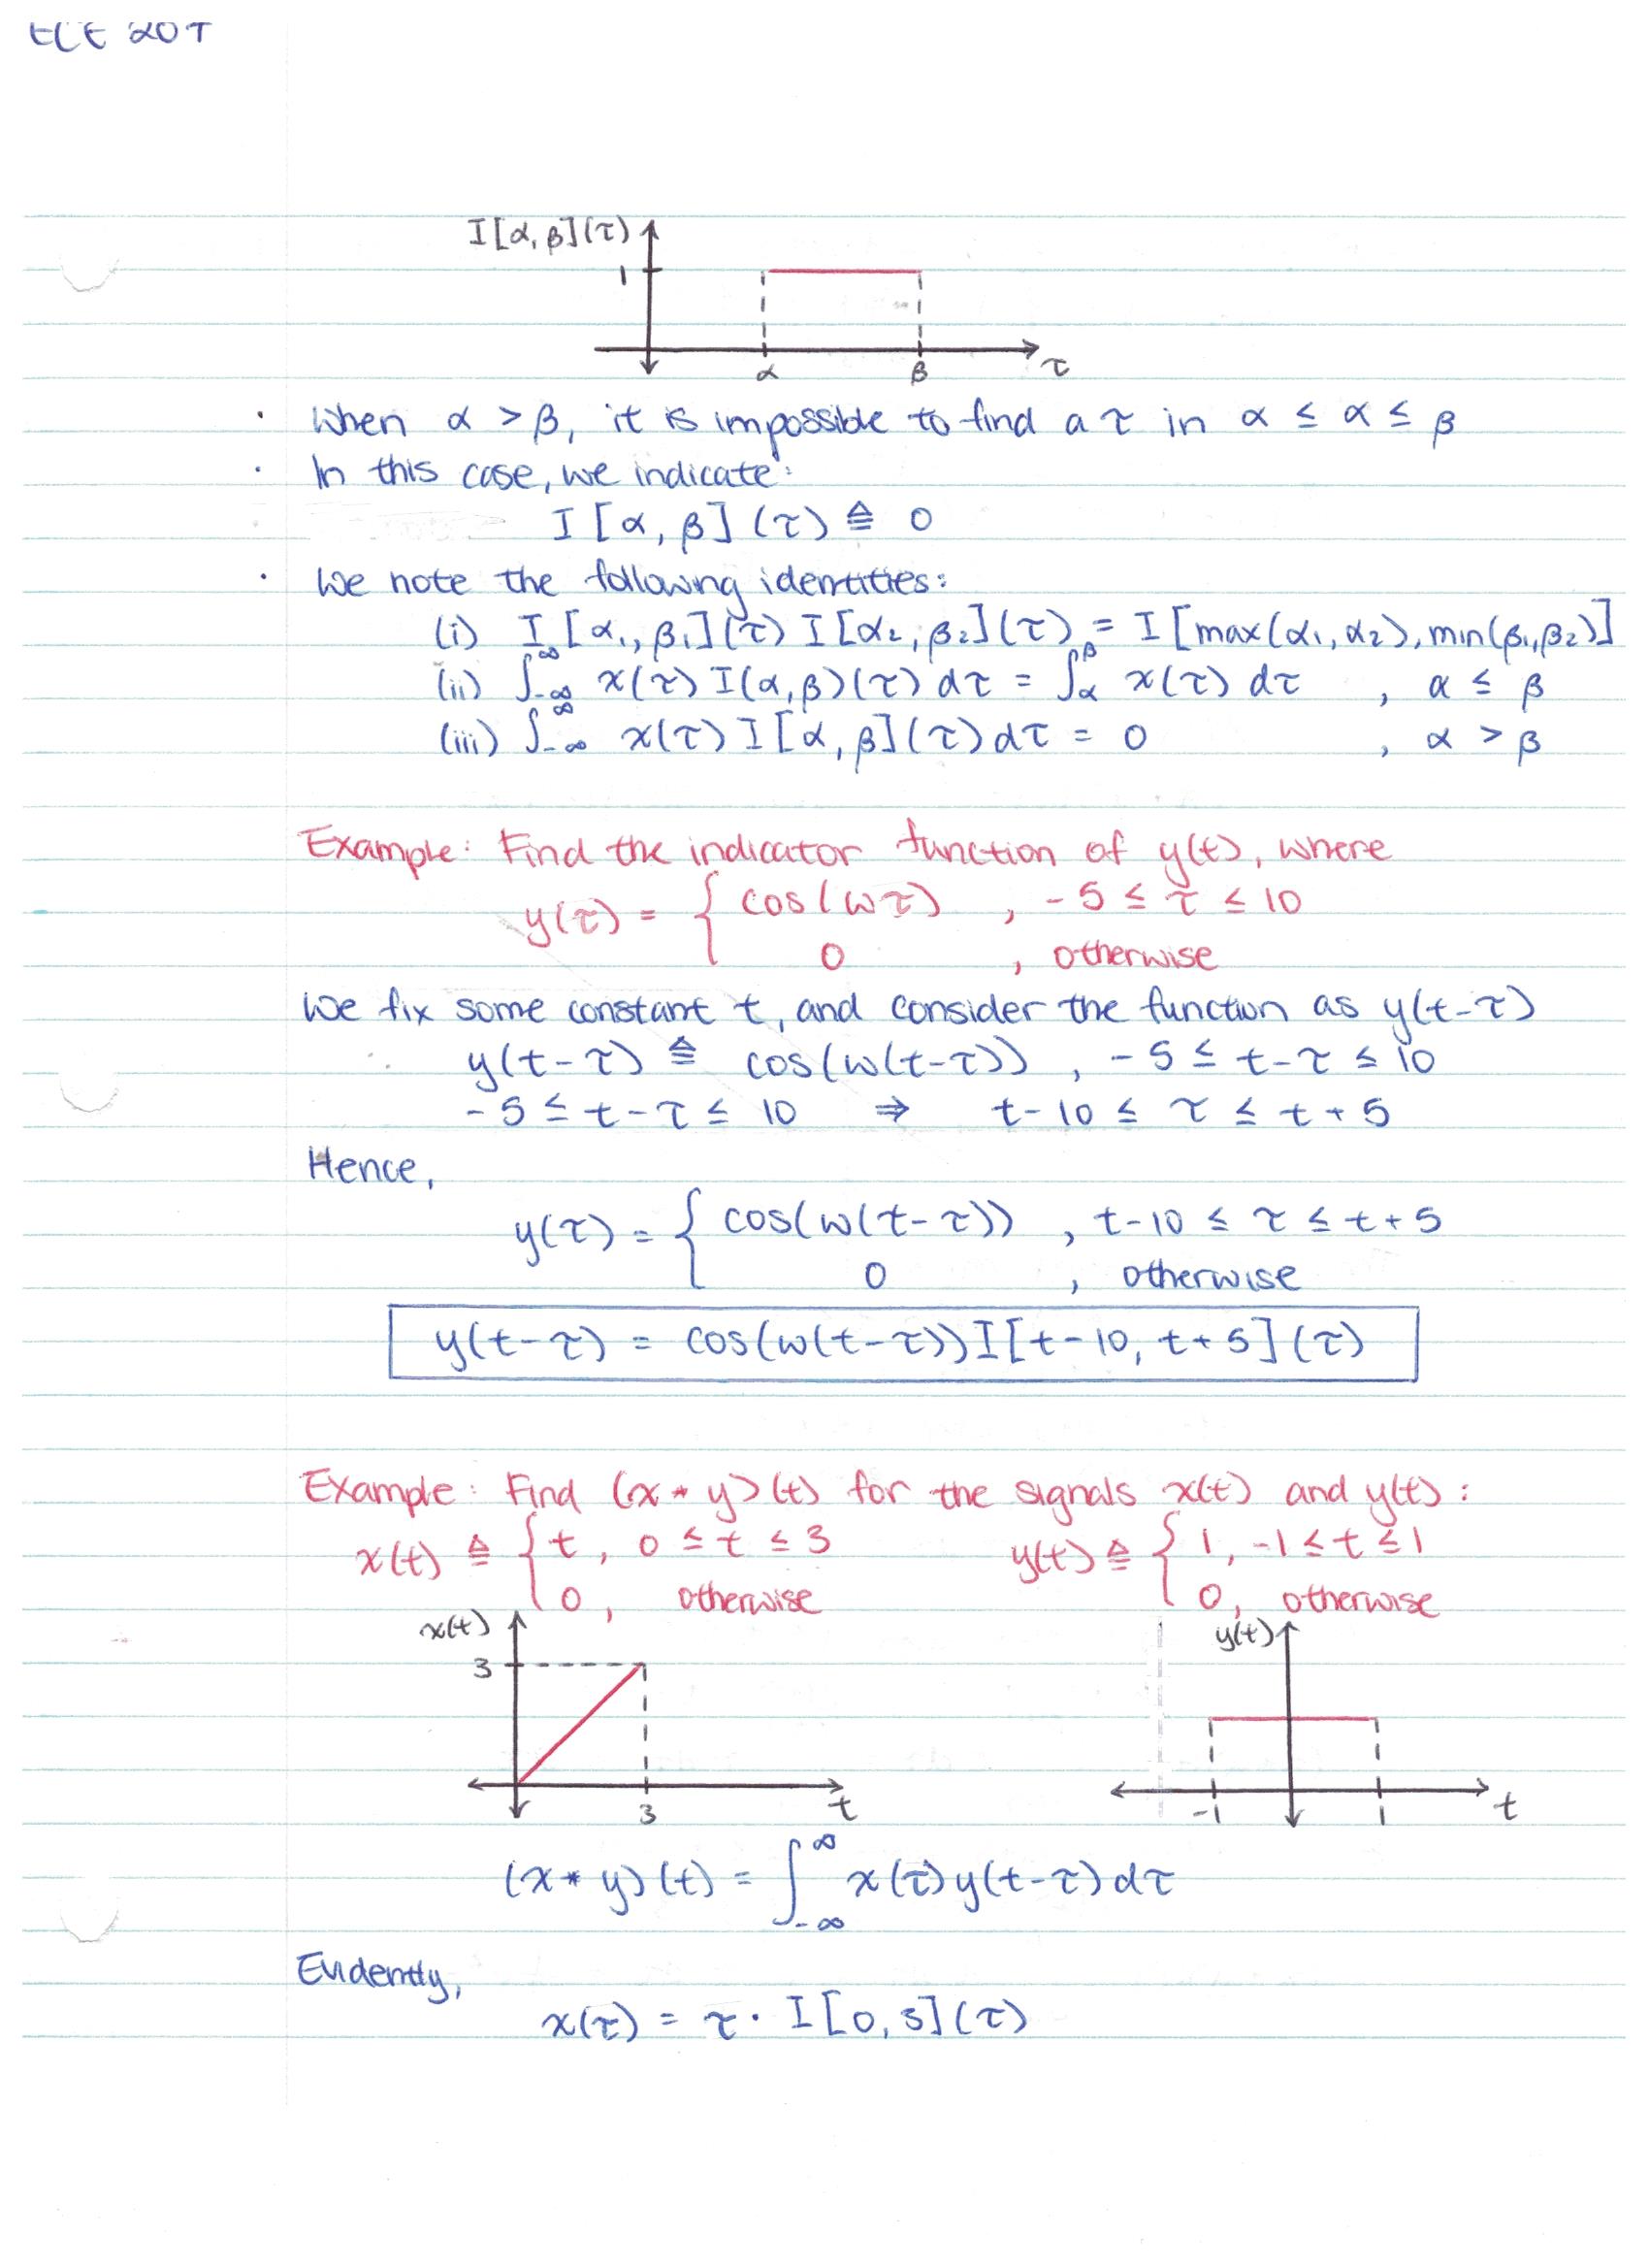 I[α, β](τ)
1
α β τ
· When α > β, it is impossible to find a τ in α ≤ α ≤ β
· In this case, we indicate:
I[α, β](τ) ≜ 0
· We note the following identities:
(i) I[α₁, β₁](τ) I[α₂, β₂](τ) = I[max(α₁, α₂), min(β₁, β₂)]
(ii) ∫_{-∞}^{∞} x(τ) I(α, β)(τ) dτ = ∫_α^β x(τ) dτ , α ≤ β
(iii) ∫_{-∞}^{∞} x(τ) I[α, β](τ) dτ = 0 , α > β
Example: Find the indicator function of y(t), where
y(τ) = { cos(ωτ) , -5 ≤ τ ≤ 10
0 , otherwise
We fix some constant t, and consider the function as y(t-τ)
y(t-τ) ≜ cos(ω(t-τ)) , -5 ≤ t-τ ≤ 10
-5 ≤ t-τ ≤ 10 ⇒ t-10 ≤ τ ≤ t+5
Hence,
y(τ) = { cos(ω(t-τ)) , t-10 ≤ τ ≤ t+5
0 , otherwise
y(t-τ) = cos(ω(t-τ)) I[t-10, t+5](τ)
Example: Find (x * y)(t) for the signals x(t) and y(t):
x(t) ≜ { t, 0 ≤ t ≤ 3 y(t) ≜ { 1, -1 ≤ t ≤ 1
0, otherwise 0, otherwise
x(t) y(t)
3
3 t -1 1 t
(x * y)(t) = ∫_{-∞}^{∞} x(τ) y(t-τ) dτ
Evidently,
x(τ) = τ · I[0, 3](τ)